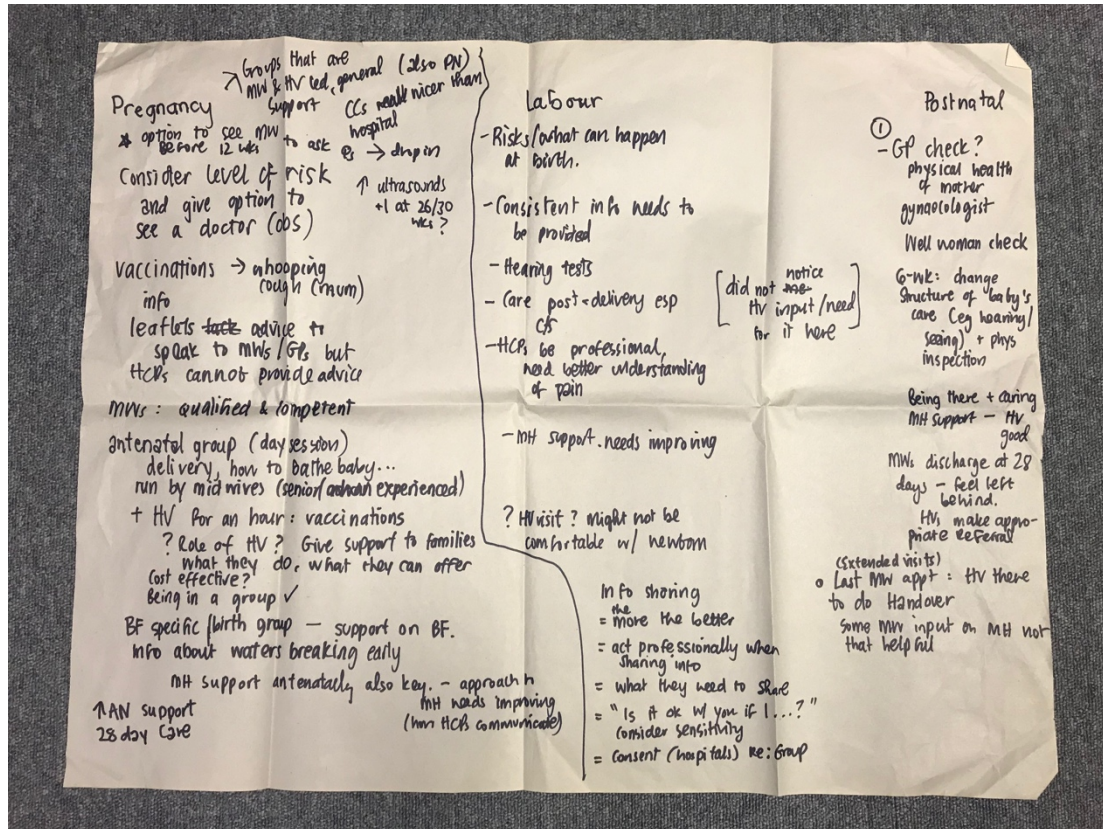 Pregnancy
↗ Groups that are
MW & HV led, general (also PN)
support
CCs nicer than
hospital
* option to see MW
before 12 wks to ask Qs → drop in
Consider level of risk
and give option to
see a doctor (obs)
↑ ultrasounds
+1 at 26/30
wks?
vaccinations → whooping
cough (mum)
info
leaflets advice to
speak to MWs/GPs but
HCPs cannot provide advice
MWs: qualified & competent
antenatal group (day session)
delivery, how to bathe baby...
run by midwives (senior/ experienced)
+ HV for an hour: vaccinations
? Role of HV? Give support to families
what they do, what they can offer
Cost effective?
Being in a group ✓
BF specific/birth group — support on BF.
Info about waters breaking early
MH support antenatally also key. - approach to
MH needs improving
(how HCPs communicate)
↑ AN support
28 day care
Labour
- Risks/what can happen
at birth.
- Consistent info needs to
be provided
- Hearing tests
- Care post-delivery esp
c/s
- HCPs be professional,
need better understanding
of pain
[did not notice
HV input/need
for it here]
- MH support. needs improving
? HV visit? Might not be
comfortable w/ newborn
Info sharing
= the more the better
= act professionally when
sharing info
= what they need to share
= "Is it ok w/ you if I...?"
consider sensitivity
= Consent (hospitals) Re: Group
Postnatal
①
- GP check?
physical health
of mother
gynaecologist
Well woman check
6-wk: change
structure of "baby's
care (eg hearing/
seeing) + phys
inspection
Being there + caring
MH support — HV
good
MWs discharge at 28
days — feel left
behind.
HVs make appro-
priate referral
(Extended visits)
• Last MW appt: HV there
to do Handover
Some MW input on MH not
that helpful